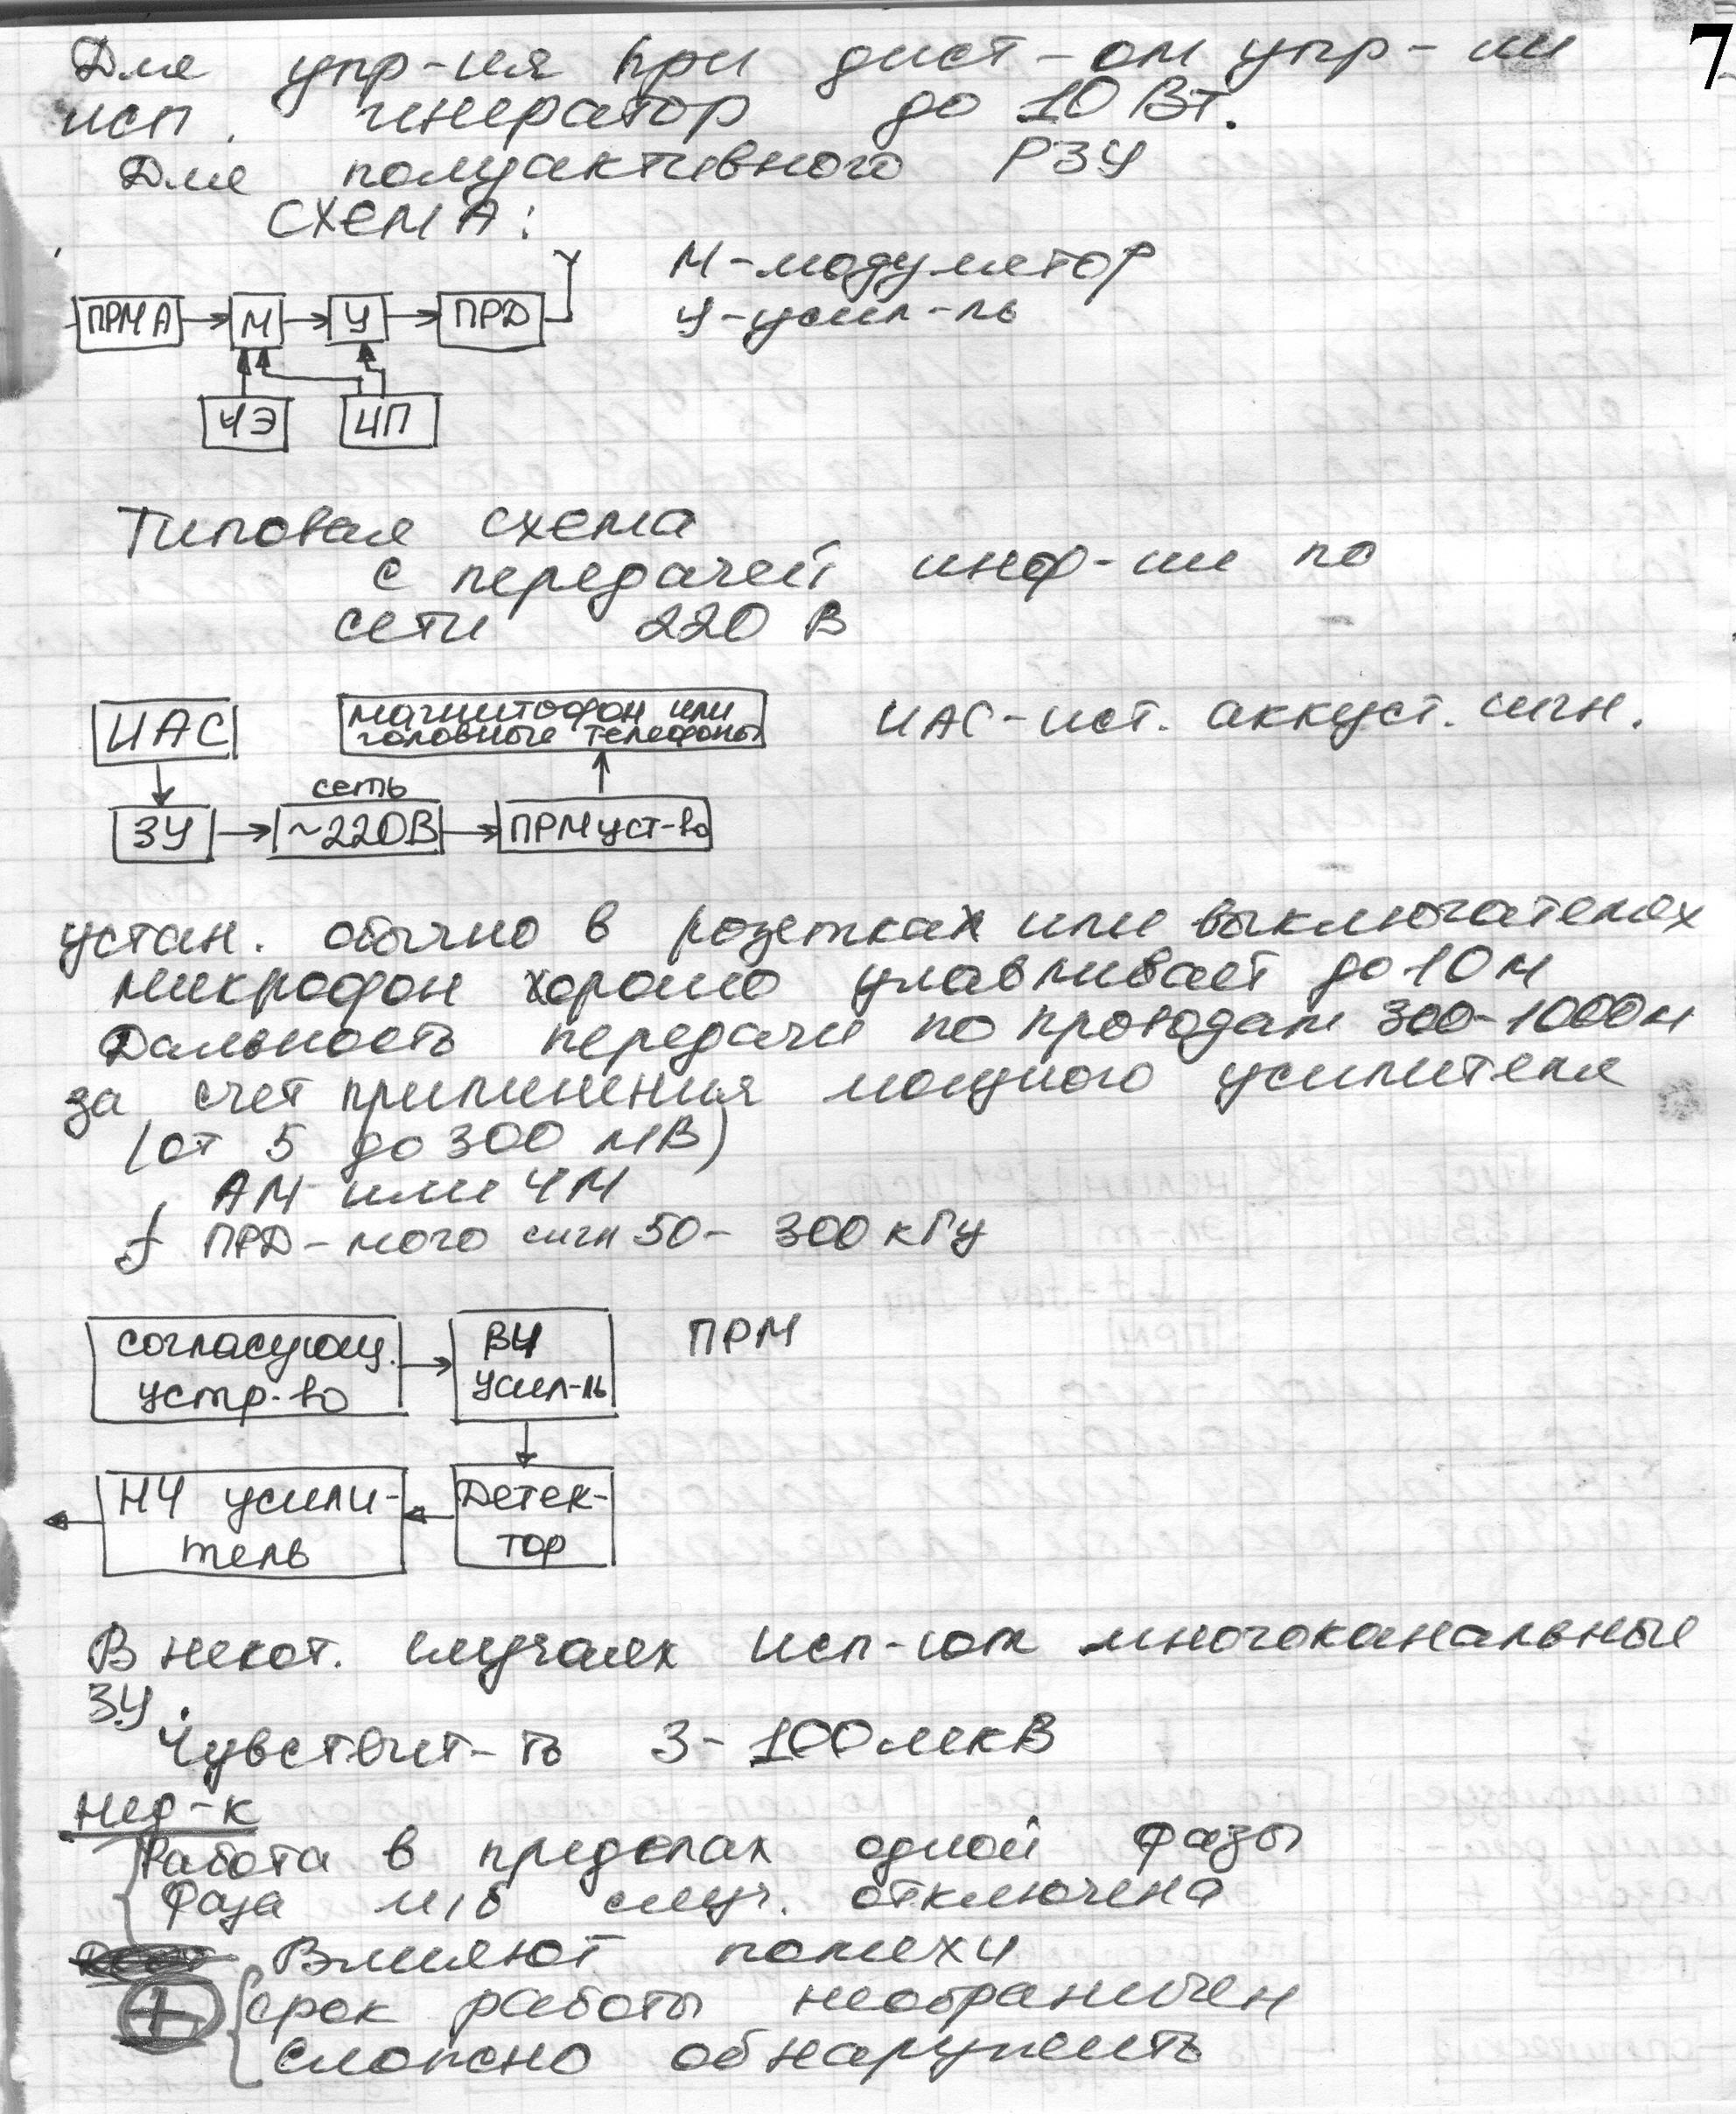 7
Для упр-ия при дист-ом упр-ии
исп. генератор до 10 Вт.
Для полуактивного РЗУ
СХЕМА:
М-модулятор
У-усил-ль
ПРМ А М У ПРД
ЧЭ ИП
Типовая схема
с передачей инф-ии по
сети 220 В
ИАС магнитофон или
головные телефоны
ИАС-ист. аккуст. сигн.
сеть
ЗУ ~220В ПРМ уст-во
устан. обычно в розетках или выключателях
микрофон хорошо улавливает до 10м
Дальность передачи по проводам 300-1000м
за счет применения мощного усилителя
(от 5 до 300 мВ)
АМ или ЧМ
f ПРД-мого сигн 50- 300 кГц
согласующ.
устр-во
ВЧ
усил-ль
ПРМ
НЧ усили-
тель
Детек-
тор
В некот. случаях исп-ют многоканальные
ЗУ.
Чувствит-ть 3-100 мкВ
Нед-к
Работа в пределах одной фазы
Фаза м/б случ. отключена
Влияют помехи
+ срок работы неограничен
Сложно обнаружить